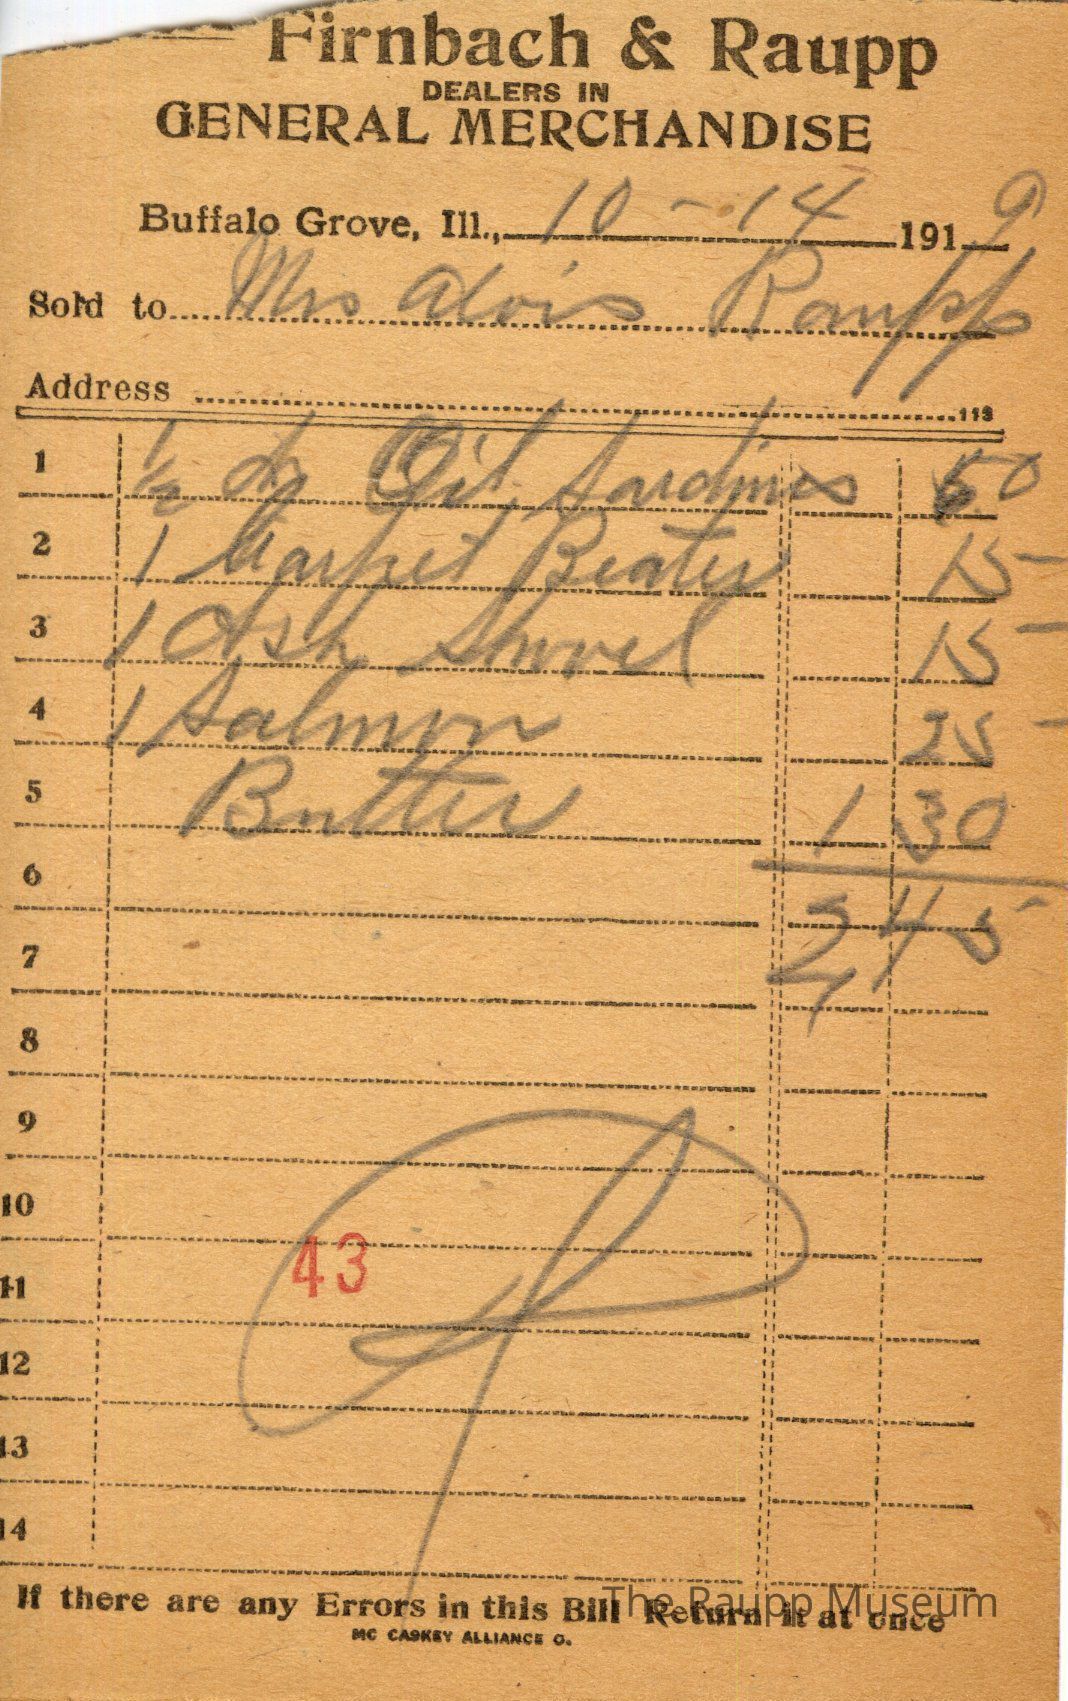 Firnbach & Raupp
DEALERS IN
GENERAL MERCHANDISE
Buffalo Grove, Ill., 10 - 14 1919
Sold to Mrs Alois Raupp
Address 113
1 1/2 Dz Oil Sardines 50
2 1 Carpet Beater 15-
3 1 Ash Shovel 15-
4 1 Salmon 25-
5 Butter 1 30
6 2 45-
7
8
9
10
43
11
12
13
14
If there are any Errors in this Bill Return it at once
MC CASKEY ALLIANCE O.
The Raupp Museum